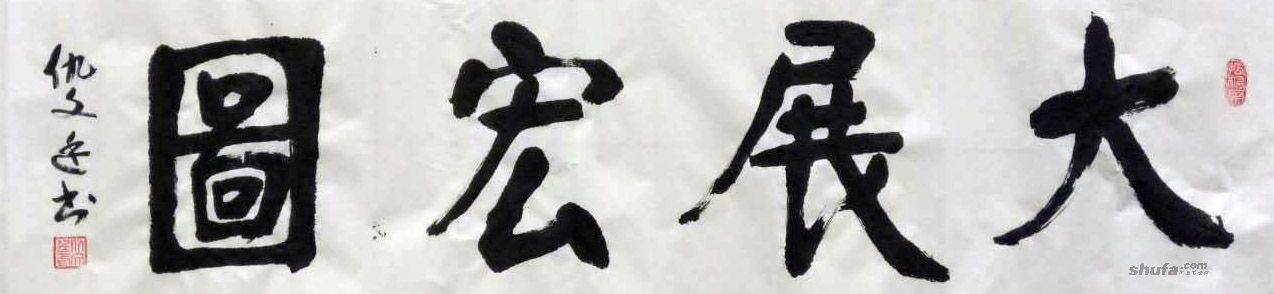 大展宏圖
仇文逵书
shufa.com